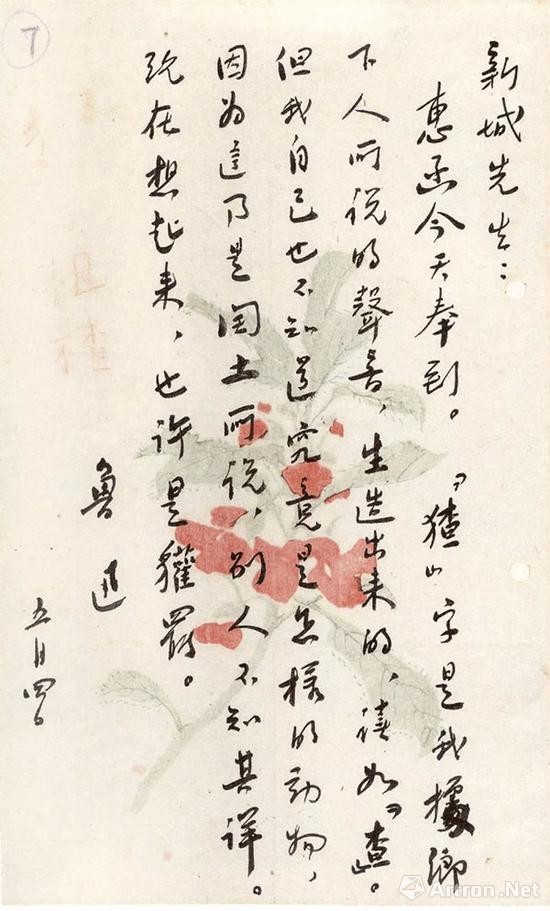 7
新城先生：
惠函今天奉到。『猹』字是我據鄉
下人所说的聲音，生造出来的，读如『查』。
但我自己也不知道究竟是怎樣的動物，
因为這乃是闰土所说，别人不知其详。
现在想起来，也许是獾罷。
魯迅
五月四日
Artron.Net